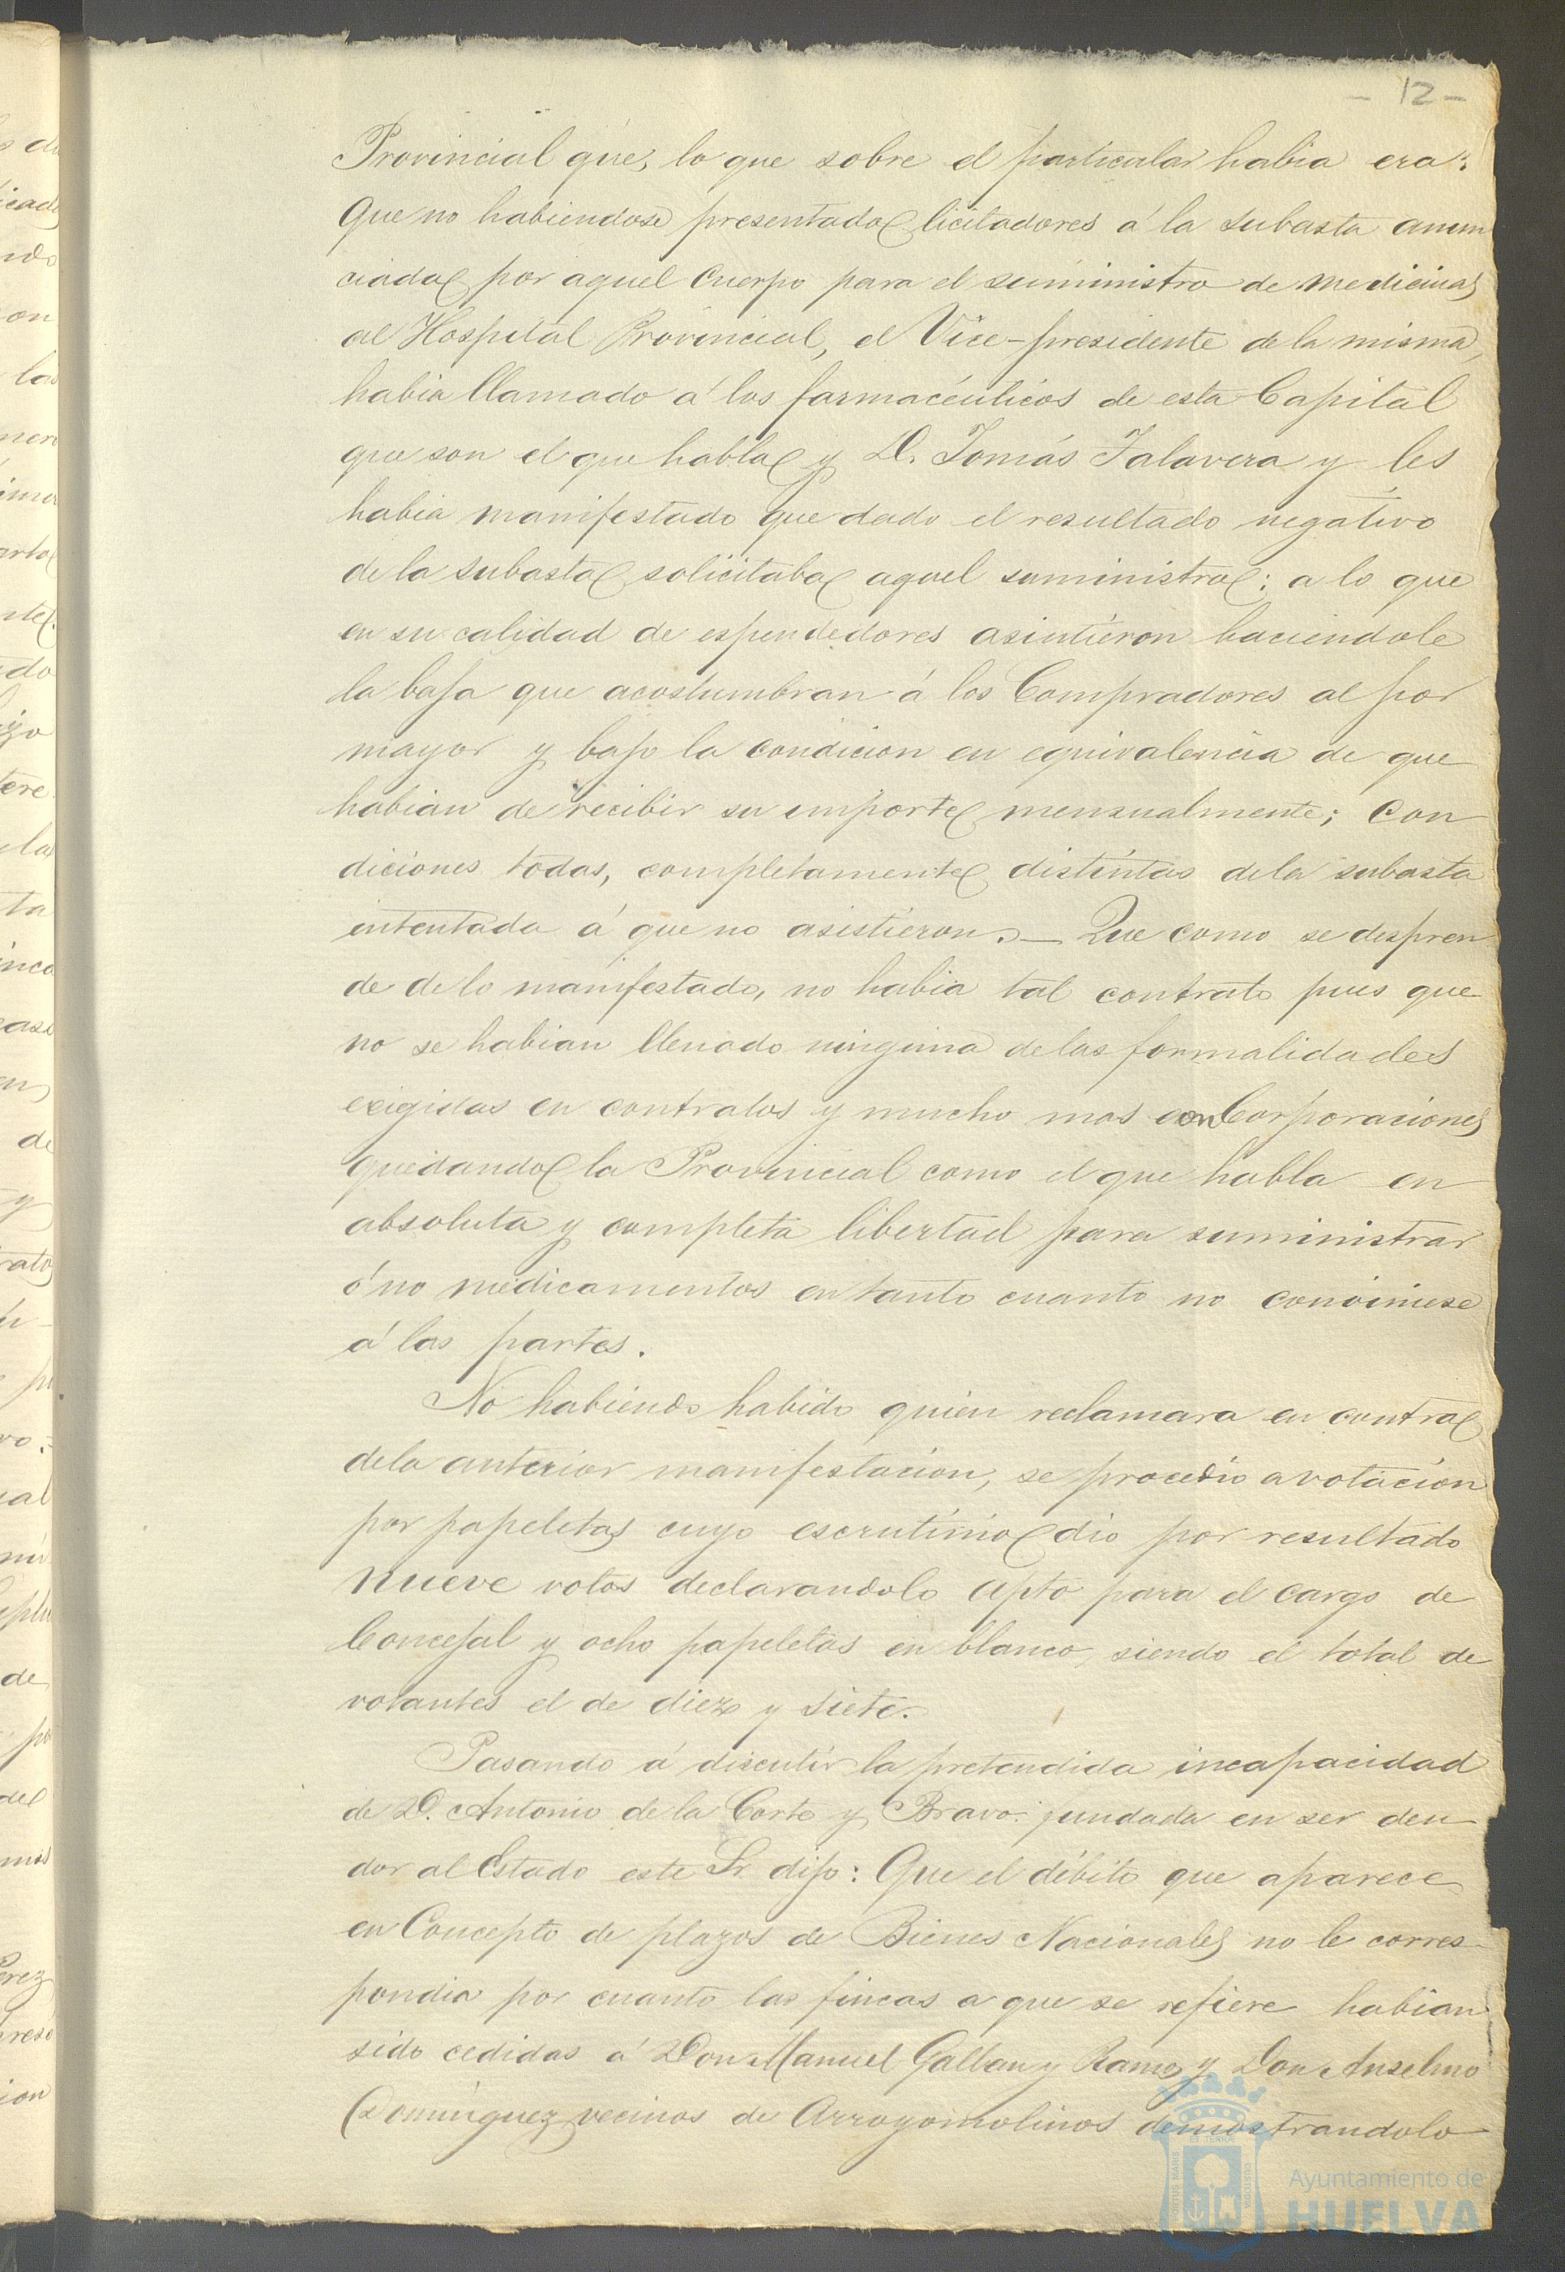 - 12 -
Provincial que, lo que sobre el particular habia era:
Que no habiendose presentado licitadores á la subasta anun
ciada por aquel Cuerpo para el suministro de medicinas
al Hospital Provincial, el Vice-presidente de la misma,
habia llamado á los farmacéuticos de esta Capital
que son el que habla y D. Tomás Talavera y les
habia manifestado que dado el resultado negativo
de la subasta solicitaba aquel suministro: a lo que
en su calidad de espendedores asintieron haciendole
la baja que acostumbran á los Compradores al por
mayor y bajo la condicion en equivalencia de que
habian de recibir su importe mensualmente; Con
diciones todas, completamente distintas de la subasta
intentada á que no asistieron.— Que como se despren
de de lo manifestado, no habia tal contrato pues que
no se habian llenado ninguna de las formalidades
exigidas en contratos y mucho mas con Corporaciones
quedando la Provincial como el que habla en
absoluta y completa libertad para suministrar
ó no medicamentos en tanto cuanto no conviniese
á las partes.
No habiendo habido quien reclamara en contra
de la anterior manifestacion, se procedio a votacion
por papeletas cuyo escrutinio dio por resultado
nueve votos declarandolo apto para el cargo de
Concejal y ocho papeletas en blanco, siendo el total de
votantes el de diez y siete.
Pasando á discutir la pretendida incapacidad
de D. Antonio de la Corte y Bravo fundada en ser deu
dor al Estado este Sr. dijo: Que el débito que aparece
en Concepto de plazos de Bienes Nacionales no le corres-
pondia por cuanto las fincas a que se refiere habian
sido cedidas á Don Manuel Galban y Ramos y Don Anselmo
Dominguez vecinos de Arroyomolinos demostrandolo
Ayuntamiento de
HUELVA